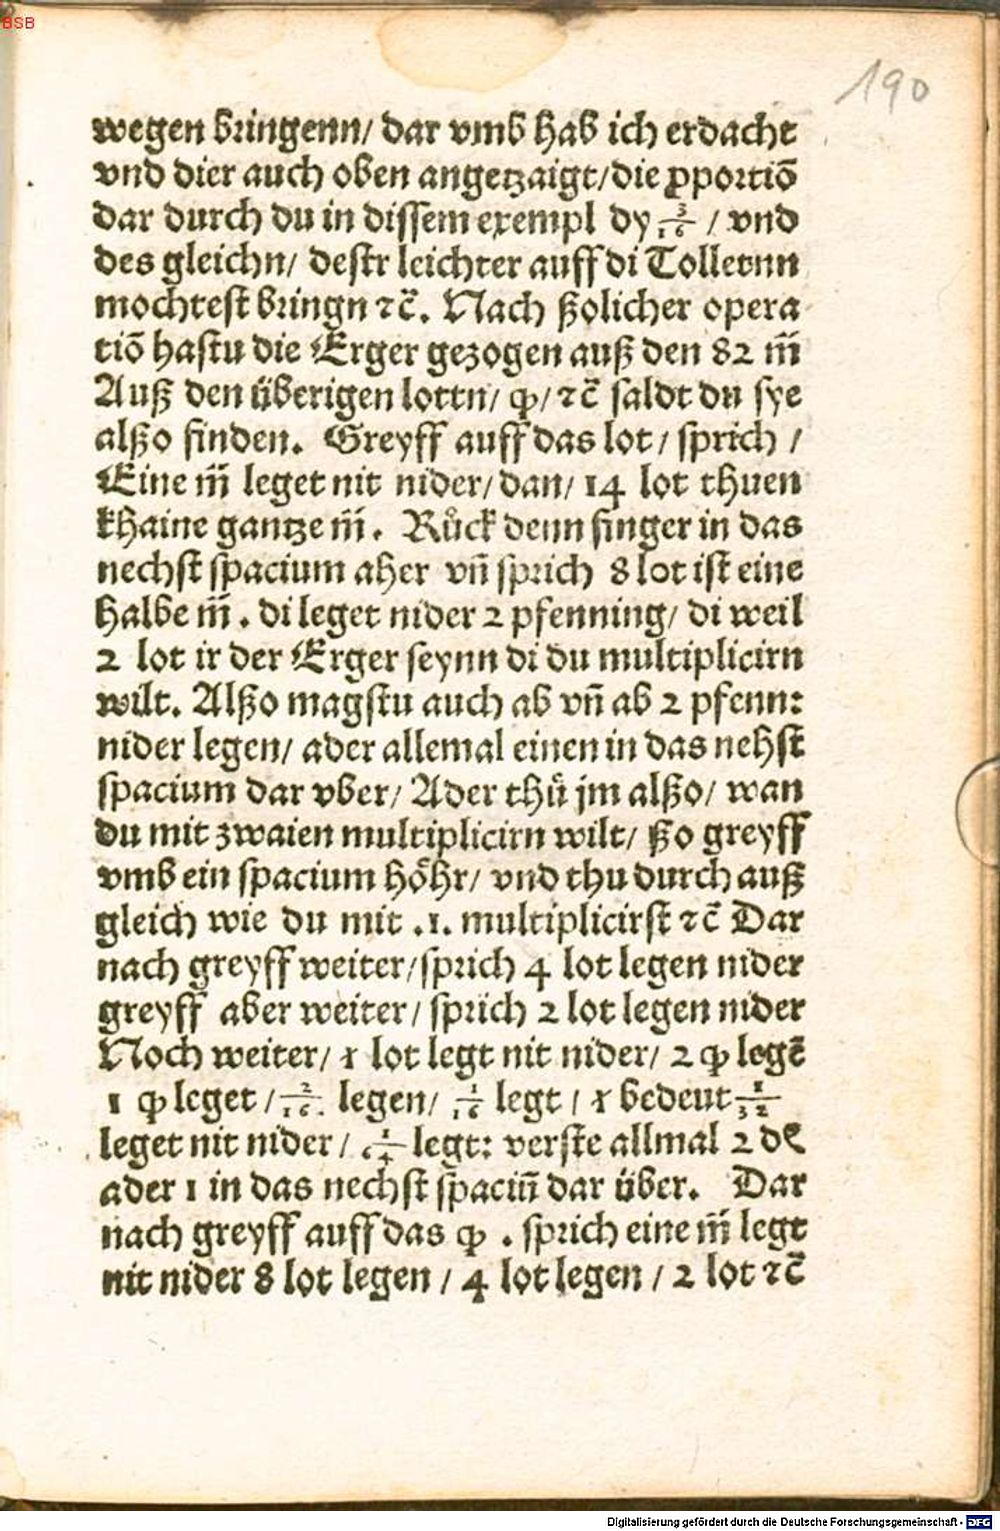 BSB
190
wegen bringenn/ dar vmb hab ich erdacht
vnd dier auch oben angetzaigt/die ꝓportiō
dar durch du in dissem exempl dy 3/16 / vnd
des gleichn/ destr leichter auff di Tolletnn
mochtest bringn ⁊c̄. Nach ßolicher opera
tiō hastu die Erger gezogen auß den 82 m̄
Auß den überigen lottn/ qͥ/ ⁊c̄ saldt du sye
alßo finden. Greyff auff das lot / sprich /
Eine m̄ leget nit nider/ dan/ 14 lot thuen
khaine gantze m̄. Růck denn finger in das
nechst spacium aher vn̄ sprich 8 lot ist eine
halbe m̄ . di leget nider 2 pfenning/ di weil
2 lot ir der Erger seynn di du multiplicirn
wilt. Alßo magstu auch ab vn̄ ab 2 pfenn:
nider legen/ ader allemal einen in das nehst
spacium dar vber/ Ader thů jm alßo/ wan
du mit zwaien multiplicirn wilt/ ßo greyff
vmb ein spacium höhr/ vnd thu durch auß
gleich wie du mit .1. multiplicirst ⁊c̄ Dar
nach greyff weiter/sprich 4 lot legen nider
greyff aber weiter/ sprich 2 lot legen nider
Noch weiter/ 1 lot legt nit nider/ 2 qͥ legē
1 qͥ leget / 2/16. legen/ 1/16 legt / 1 bedeut 1/32
leget nit nider / 1/64 legt: verste allmal 2 ₰
ader 1 in das nechst spaciū dar über. Dar
nach greyff auff das qͥ . sprich eine m̄ legt
nit nider 8 lot legen / 4 lot legen / 2 lot ⁊c̄
Digitalisierung gefördert durch die Deutsche Forschungsgemeinschaft - DFG